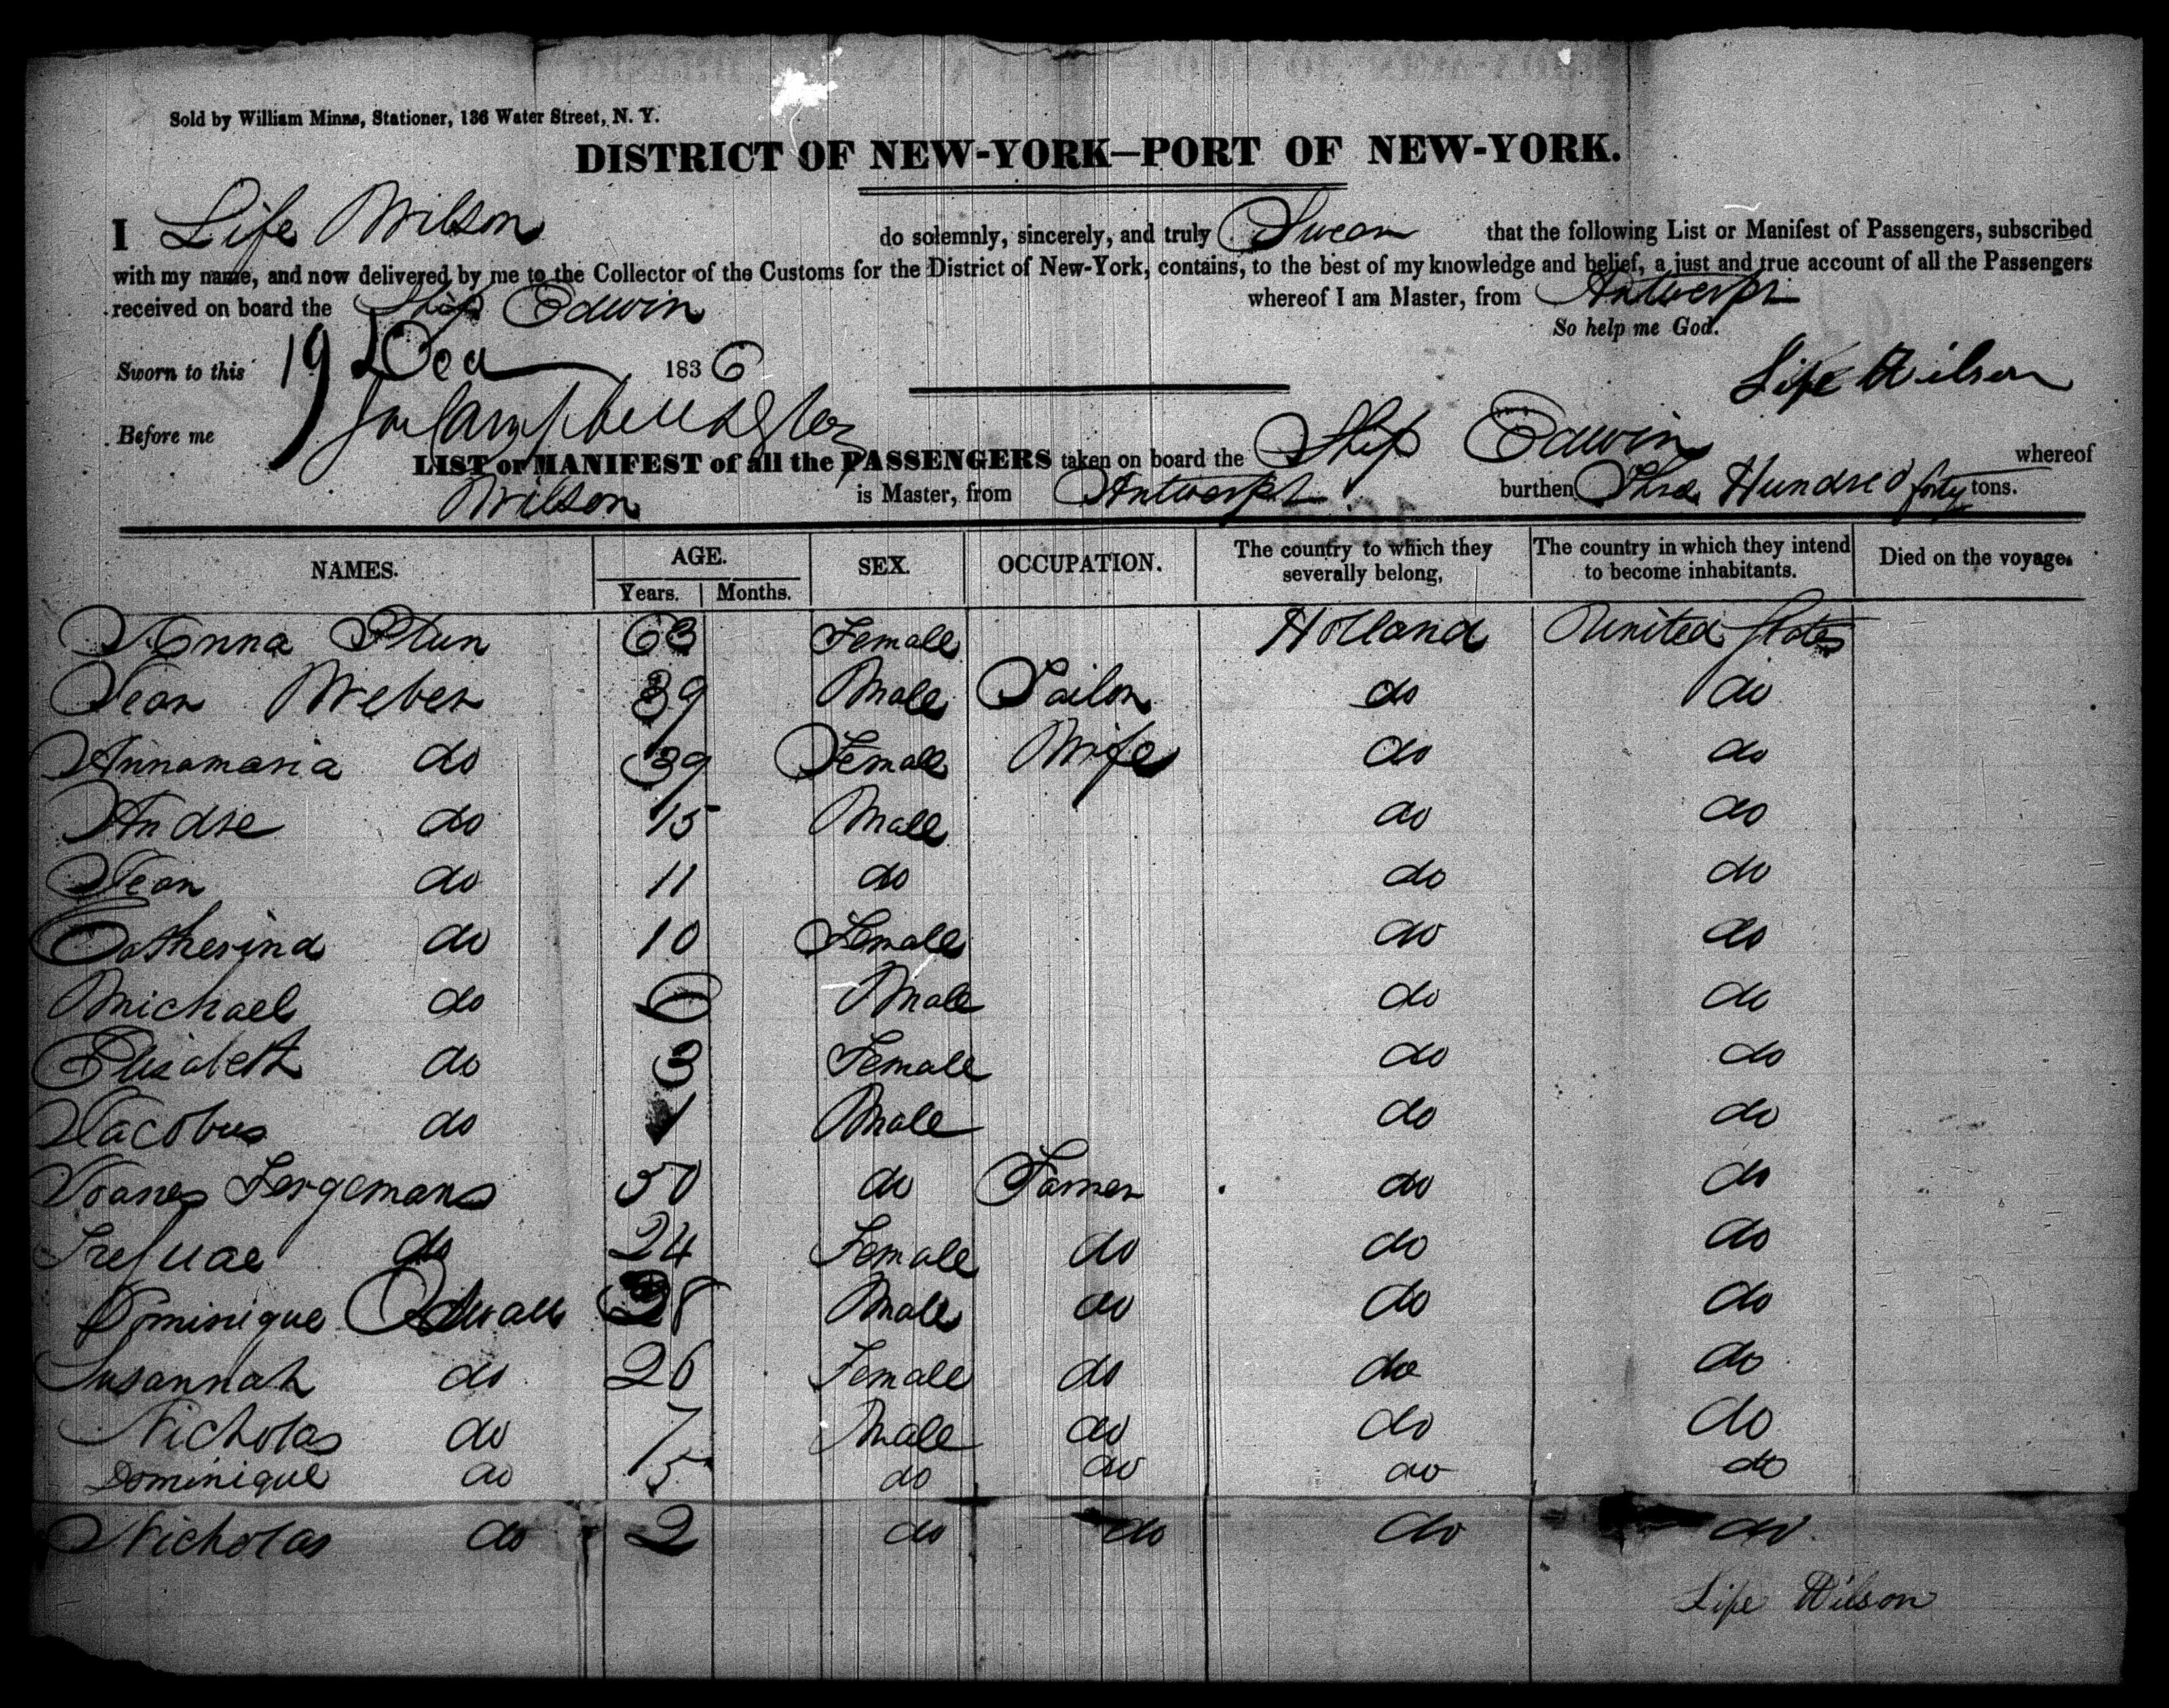 Sold by William Minns, Stationer, 136 Water Street, N. Y.
DISTRICT OF NEW-YORK—PORT OF NEW-YORK.
I Life Wilson do solemnly, sincerely, and truly Swear that the following List or Manifest of Passengers, subscribed
with my name, and now delivered by me to the Collector of the Customs for the District of New-York, contains, to the best of my knowledge and belief, a just and true account of all the Passengers
received on board the Ship Edwin whereof I am Master, from Antwerp
So help me God.
Sworn to this 19 Dec 1836
Life Wilson
Before me
LIST or MANIFEST of all the PASSENGERS taken on board the Ship Edwin whereof
Wilson is Master, from Antwerp burthen Three Hundred forty tons.
NAMES. AGE. Years. Months. SEX. OCCUPATION. The country to which they severally belong, The country in which they intend to become inhabitants. Died on the voyage.
Anna 63 Female Holland United States
Jean Weber 39 Male do do
Annamaria do 39 Female Wife do do
Andre do 15 Male do do
Jean do 11 do do do
Catherina do 10 Female do do
Michael do 6 Male do do
Elisabeth do 3 Female do do
Jacobus do 1 Male do do
Joanes Fergemans 50 do Farmer do do
do 24 Female do do do
Dominique Male do do do
Susannah do 26 Female do do do
Nicholas do 7 Male do do do
Dominique do 5 do do do do
Nicholas do 2 do do do do
Life Wilson